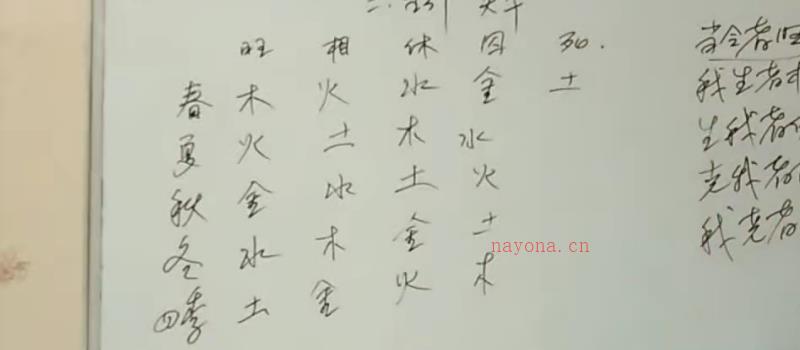 旺 相 休 囚 死.
春 木 火 水 金 土
夏 火 土 木 水
秋 金 水 土 火
冬 水 木 金 土
四季 土 金 火 木
当令者旺
我生者相
生我者休
克我者
我克者
nayona.cn